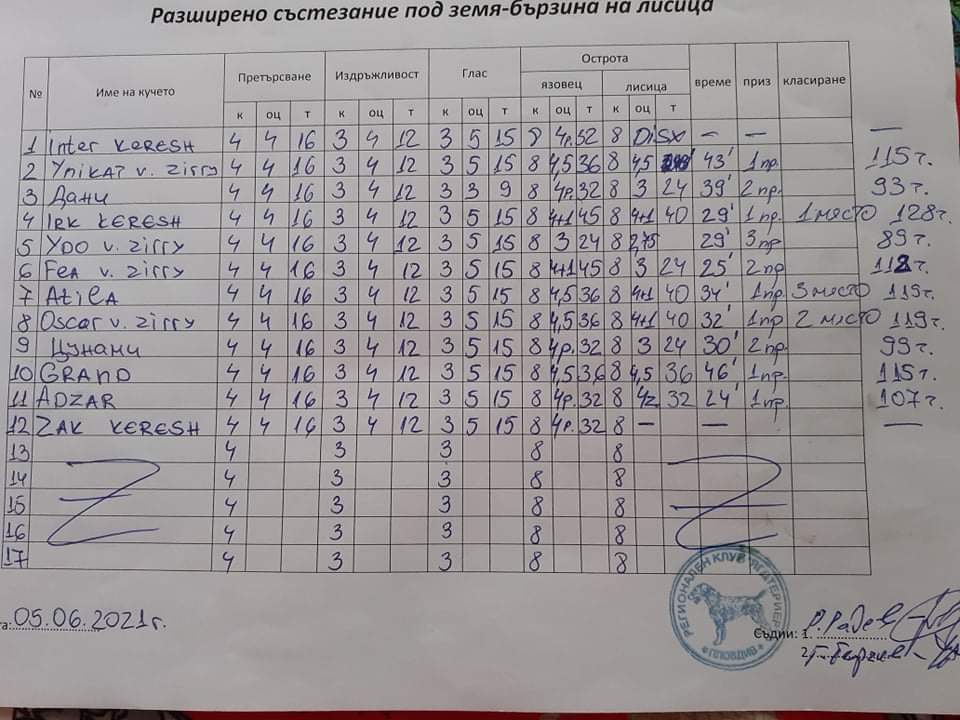 Разширено състезание под земя-бързина на лисица
№ Име на кучето Претърсване Издръжливост Глас Острота време приз класиране
язовец лисица
к оц т к оц т к оц т к оц т к оц т
1 Inter KERESH 4 4 16 3 4 12 3 5 15 8 4р. 32 8 Disk – – —
2 Ynikat v. zirry 4 4 16 3 4 12 3 5 15 8 4,5 36 8 4,5 43' 1 пр. 115 т.
3 Дани 4 4 16 3 4 12 3 3 9 8 4р. 32 8 3 24 39' 2 пр. 93 т.
4 IRK KERESH 4 4 16 3 4 12 3 5 15 8 4+1 45 8 4+1 40 29' 1 пр. 1 място 128 т.
5 YDO v. zirry 4 4 16 3 4 12 3 5 15 8 3 24 8 2,75 29' 3 пр 89 т.
6 FEA v. zirry 4 4 16 3 4 12 3 5 15 8 4+1 45 8 3 24 25' 2 пр 112 т.
7 AtilA 4 4 16 3 4 12 3 5 15 8 4,5 36 8 4+1 40 34' 1 пр. 3 място 119 т.
8 Oscar v. zirry 4 4 16 3 4 12 3 5 15 8 4,5 36 8 4+1 40 32' 1 пр 2 място 119 т.
9 Цунами 4 4 16 3 4 12 3 5 15 8 4р. 32 8 3 24 30' 2 пр. 99 т.
10 GRAND 4 4 16 3 4 12 3 5 15 8 4,5 36 8 4,5 36 46' 1 пр. 115 т.
11 ADZAR 4 4 16 3 4 12 3 5 15 8 4р. 32 8 4z 32 24' 1 пр. 107 т.
12 ZAK KERESH 4 4 16 3 4 12 3 5 15 8 4р. 32 8 – — —
13 4 3 3 8 8
14 4 3 3 8 8
15 4 3 3 8 8
16 4 3 3 8 8
17 4 3 3 8 8
РЕГИОНАЛЕН КЛУБ "ЯГДТЕРИЕР"
та: 05.06.2021г.
Съдии: 1. Р. Радев
2.